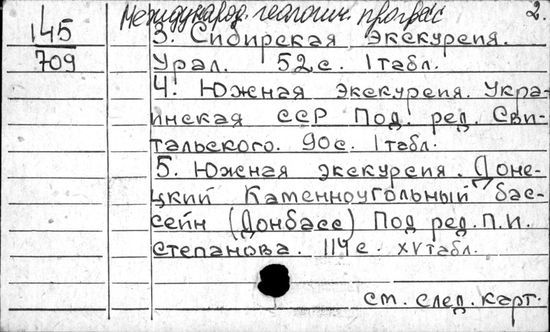 Международ. геологич. прогрес 2.
145
709
3. Сибирская экскурсия.
Урал. 52с. 1табл.
4. Южная экскурсия. Укра-
инская ССР Под. ред. Сви-
тальского. 90с. 1табл.
5. Южная экскурсия. Доне-
цкий Каменноугольный бас-
сейн (Донбасс) Под ред. П.И.
Степанова. 114с. XVтабл.
см. след. карт.